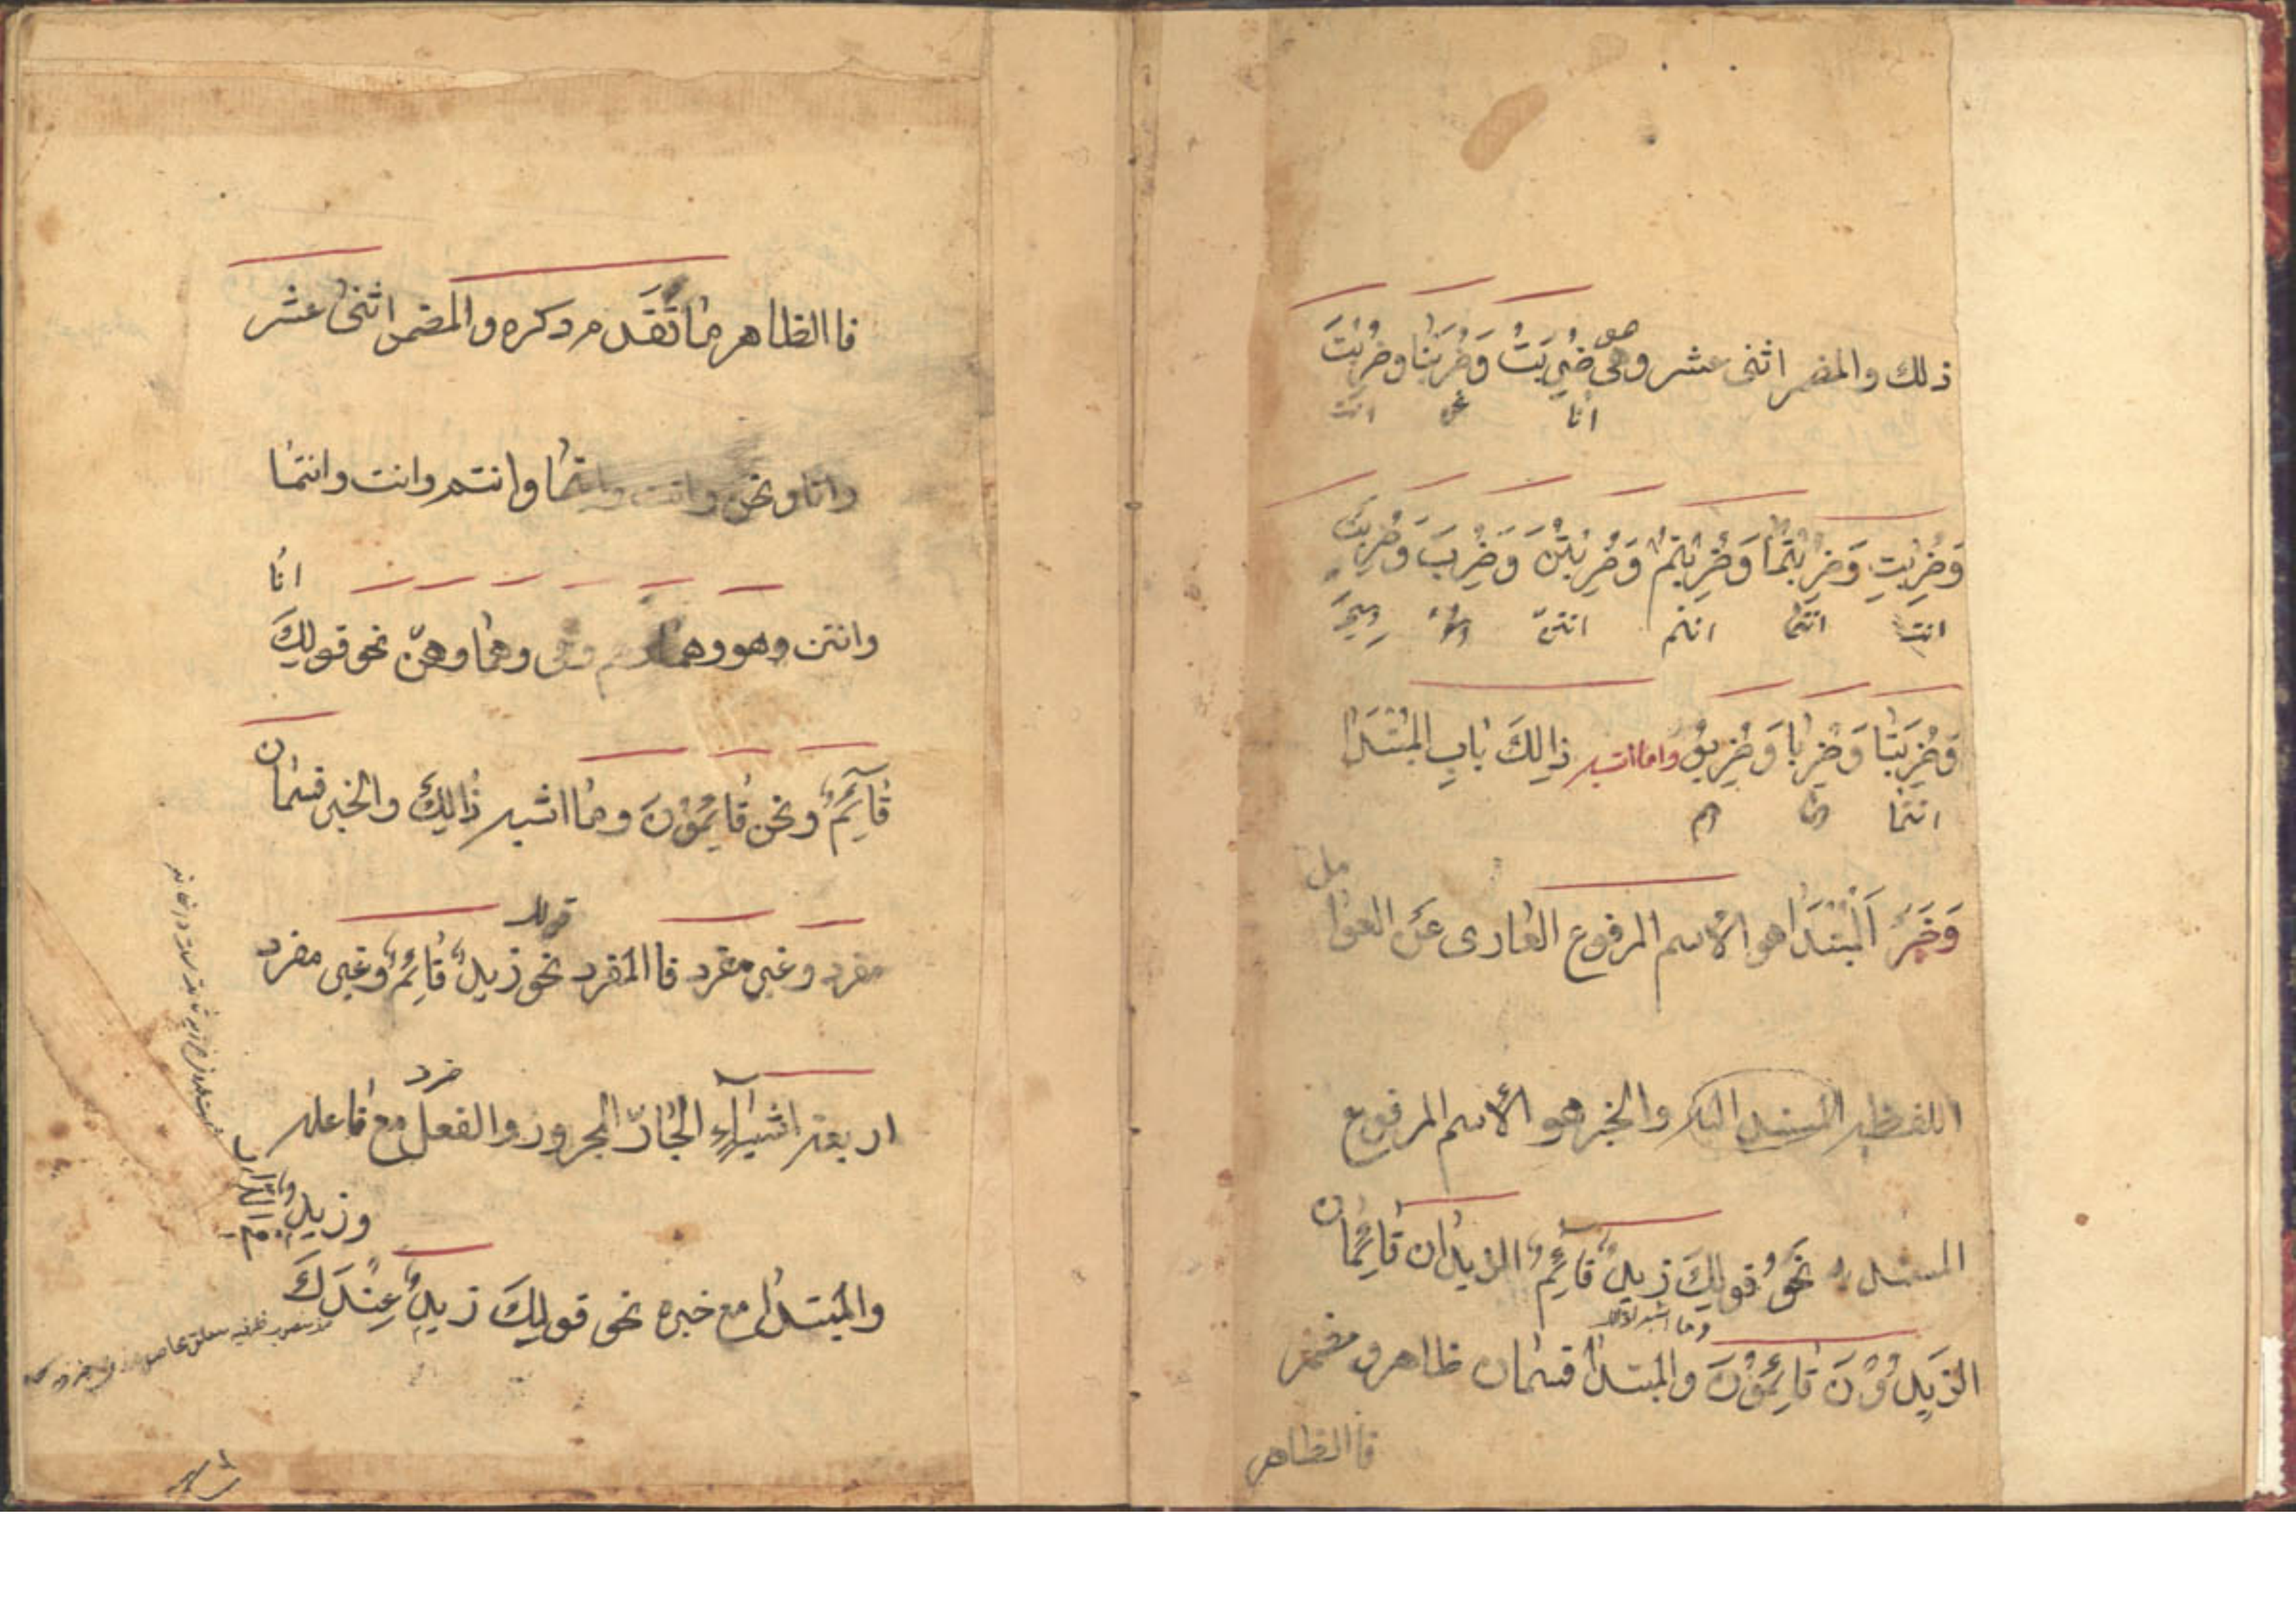 ذلك والمضمر اثنى عشر وهى ضُرِبَتُ وَضُرِبَنَا وضُرِبْتَ
هو
انا نحن انت
وَضُرِبْتِ وَضُرِبْتُمَا وَضُرِبْتُمْ وَضُرِبْتُنَّ وَضُرِبَ وَضُرِبَتْ
انتِ انتما انتم انتنّ
وَضُرِبَتَا وَضُرِبَا وَضُرِبُو وما اشبه ذالِكَ بابِ المُبْتَدَا
انتما هم
وَخَبَرُ اَلْمُبْتَدَا هو الاسم المرفوع العارى عَنِ العوامل
اللفظيه المسند اليه والخبر هو الاسم المرفوع
المسند نَحْوُ قولِكَ زيدٌ قآئِمٌ الزيدان قائِمان
وما اشبه
الزيدُوْنَ قائِمُوْنَ والمبتدا قسمان ظاهر ومضمر
فاالظاهر
فاالظاهر ما تَقَدم ذكره والمضمر اثنى عشر
وانا ونحن وانت وانتما وانتم وانت وانتما
وانتن وهو وهما وهم وهى وهما وهنّ نحو قولِكَ انا
قآئِمٌ ونحن قائِمُوْنَ وما اشبه ذالِكَ والخبر قسمان
مفرد وغير مفرد فاالمفرد نحو زيدٌ قائِمٌ وغير مفرد
قولك
اربعة اشيآءِ الجارّ المجرور والفعل مع فاعله
وزيدٌ
والمبتدا مع خبره نحو قولِكَ زيدٌ عِنْدَكَ